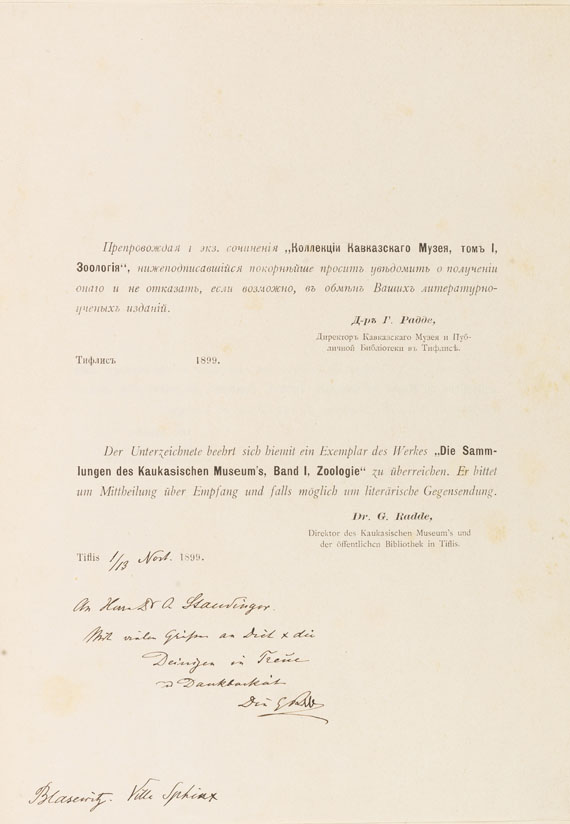 Препровождая 1 экз. сочиненія „Коллекціи Кавказскаго Музея, томъ I,
Зоологія“, нижеподписавшійся покорнѣйше проситъ увѣдомить о полученіи
онаго и не отказать, если возможно, въ обмѣнѣ Вашихъ литературно-
ученыхъ изданій.
Д-ръ Г. Радде,
Директоръ Кавказскаго Музея и Пуб-
личной Библіотеки въ Тифлисѣ.
Тифлисъ 1899.
Der Unterzeichnete beehrt sich hiemit ein Exemplar des Werkes „Die Samm-
lungen des Kaukasischen Museum's, Band I, Zoologie“ zu überreichen. Er bittet
um Mittheilung über Empfang und falls möglich um literärische Gegensendung.
Dr. G. Radde,
Direktor des Kaukasischen Museum's und
der öffentlichen Bibliothek in Tiflis.
Tiflis 1/13 1899.
An Herrn Dr A. Staudinger.
Mit vielen Grüßen an Dich & die
Deinigen in Treue
Dankbarkeit
Dein G Radde
Blasewitz. Villa Sphinx